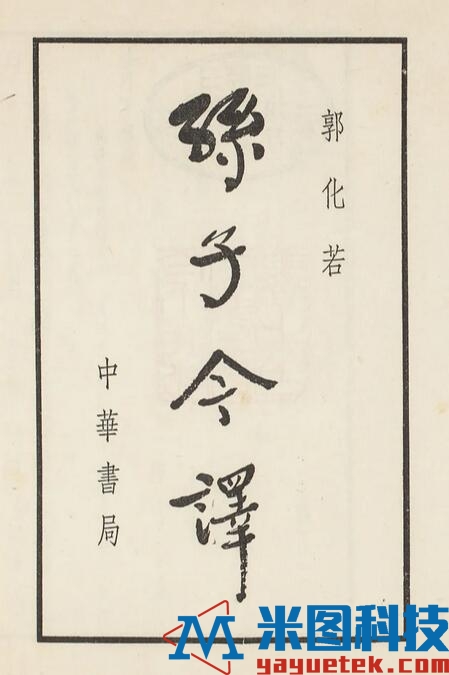 郭化若
孫子今譯
中華書局
米图科技
yayuetek.com